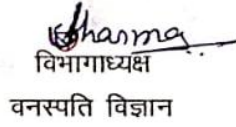 Sharma
विभागाध्यक्ष
वनस्पति विज्ञान